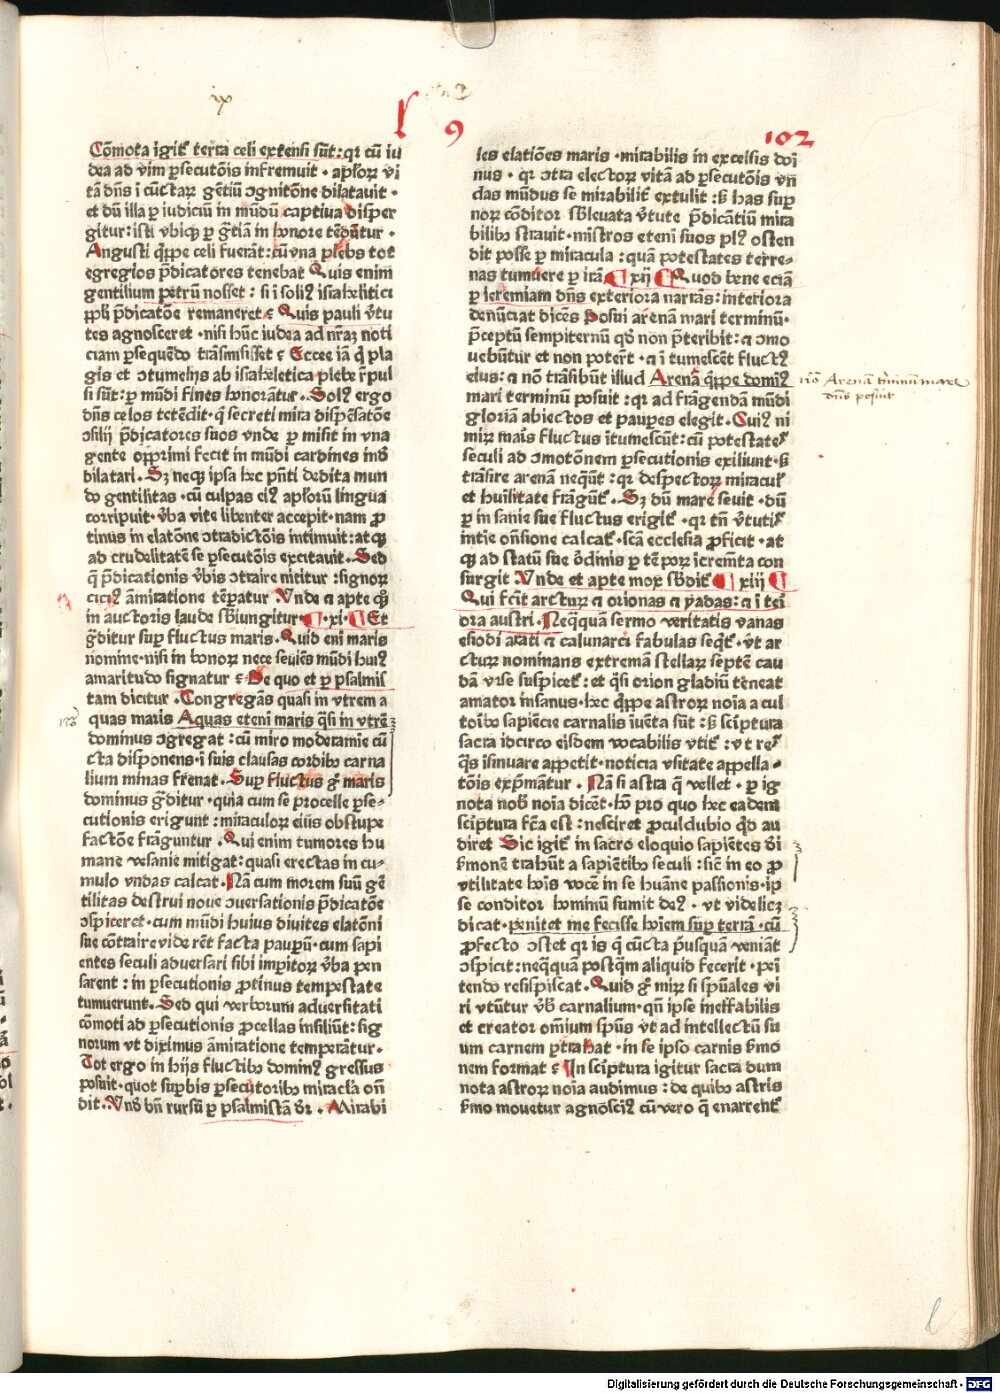 ix
L 9
102
Cōmota igiť terra celi extensi sūt: qꝛ cū iu
dea ad vim ꝑsecutōis infremuit · apl'oꝝ vi
tā dn̄s ī cūctaꝝ gētiū ↄgnitōne dilatauit ·
et dū illa ꝑ iudiciū in mūdū captiua disper
gitur: isti vbiqꝫ ꝑ gr̄tiā in honore tēdūtur ·
Angusti q̄ppe celi fuerāt: cū vna plebs tot
egregios p̄dicatores tenebat Quis enim
gentilium petrū nosset: si ī soliꝰ israhelitici
ppl'i p̄dicatōe remaneret ? Quis pauli v̄tu
tes agnosceret · nisi hūc iudea ad nr̄aꝫ noti
ciam ꝑsequēdo trāsmisisset ? Ecce iā q̄ pla
gis et ↄtumelijs ab israheletica plebe r̄pul
si sūt: ꝑ mūdi fines honorātur. Solꝰ ergo
dn̄s celos tetēdit · q̄ secreti mira dispēsatōe
ↄsilij p̄dicatores suos vnde ꝑ misit in vna
gente opprimi fecit in mūdi cardines inď
dilatari. Sꝫ neqꝫ ipsa hec p̄nti dedita mun
do gentilitas · cū culpas eiꝰ apl'orū lingua
corripuit · v̄ba vite libenter accepit · nam ꝓ
tinus in elatōne ↄtradictōis intimuit: atqꝫ
ad crudelitatē se ꝑsecutōis excitauit. Sed
q̄ p̄dicationis v̄bis ↄtraire nititur: signoꝝ
citiꝰ āmiratione tēꝑatur Vnde ⁊ apte qꝫ
in auctoris laude sb̄iungitur · xi · Et
gr̄ditur suꝑ fluctus maris · Quid eni maris
nomine · nisi in bonoꝝ nece seuiēs mūdi huiꝰ
amaritudo signatur ? De quo et ꝑ psalmis
tam dicitur · Congregās quasi in vtrem a
quas maris Aquas etenī maris q̄si in vtrē
dominus ↄgregat: cū miro moderamie cū
cta disponens · ī suis clausas cordibꝰ carna
lium minas frenat · Suꝑ fluctus gͦ maris
dominus gr̄ditur · quia cum se procelle ꝑse-
cutionis erigunt: miraculoꝝ eius obstupe
factōe frāguntur. Qui enim tumores hu
mane vesanie mitigat: quasi erectas in cu-
mulo vndas calcat. Nā cum morem suū gē
tilitas destrui noue ↄuersationis p̄dicatōe
ↄspiceret · cum mūdi huius diuites elatōni
sue cōtraire viderēt facta pauꝑū · cum sapi
entes seculi aduersari sibi imꝑitoꝝ v̄ba pen
sarent: in ꝑsecutionis ꝓtinus tempestate
tumuerunt · Sed qui verborum aduersitati
cōmoti ad ꝑsecutionis ꝓcellas insiliūt: sig
norum vt diximus āmiratione temperātur.
Tot ergo in hijs fluctibꝰ dominꝰ gressus
posuit · quot suꝑbis ꝑsecutoribꝰ miracl'a on̄
dit · Vnď bn̄ rursū ꝑ psalmistā dr̄ · Mirabi
les elatiōes maris · mirabilis in excelsis doī
nus · qꝛ ↄtra electoꝝ vitā ad ꝑsecutōis vn̄
das mūdus se mirabiliť extulit: ß has suꝑ
noꝝ cōditor sb̄leuata v̄tute p̄dicātiū mira
bilibꝰ strauit · mistros etenī suos plꝰ osten
dit posse ꝑ miracula: quā potestates terre-
nas tumuere ꝑ irā xij Quod bene eciā
ꝑ ieremiam dn̄s exteriora narrās: interiora
denūciat dicēs Posui arenā mari terminū ·
p̄ceptū sempiternū qď non p̄teribit: ⁊ ↄmo
uebūtur et non poterūt · ⁊ ī tumescēt fluctꝰ
eius: ⁊ nō trāsibūt illud Arenā q̄ppe dominꝰ
mari terminū posuit: qꝛ ad frāgendā mūdi
gloriā abiectos et pauꝑes elegit. Cuiꝰ ni
miꝝ maris fluctus ītumescūt: cū potestates
seculi ad ↄmotōnem ꝑsecutionis exiliunt · ß
trāsire arenā neq̄ūt: qꝛ despectoꝝ miraculis
et huīlitate frāgūť. Sꝫ dū mare seuit · dū
ꝑ in sanie sue fluctus erigiť · qꝛ tn̄ v̄tutis
intie on̄sione calcať · scā ecclesia ꝓficit · at
qꝫ ad statū sue ordinis ꝑ tēpoꝝ īcremēta con
surgit Vnde et apte mox sb̄diť xiij
Qui fecit arcturū ⁊ orionas ⁊ yadas: ⁊ ītei
ora austri. Neq̄quā sermo veritatis vanas
esiodi arati ⁊ calimarci fabulas seq̄ť · vt ar
cturū nominans extremā stellaꝝ septē cau
dā vrse suspiceť: et q̄si orion gladiū teneat
amator insanus · hec q̄ppe astroꝝ noīa a cul
toribꝰ sapiēcie carnalis iuēta sūt: ß scriptura
sacra idcirco eisdem vocabulis vtiť: vt res
q̄s īsinuare appetit · noticia vsitate appella-
tōis exp̄mātur. Nā si astra q̄ vellet · ꝑ ig
nota nobis noīa dicēt · hō pro quo hec eadem
scriptura fcā est: nesciret ꝓculdubio qͥd au
diret Sic igiť in sacro eloquio sapiētes dei
ẜmonē trahūt a sapiētibꝰ seculi: sic̄ in eo ꝓ
vtilitate hoīs vocē in se huāne passionis · ip
se conditor hominū sumit deꝰ · vt videlicꝫ
dicat · penitet me fecisse hoīem suꝑ terrā · cū
ꝓfecto ↄstet qꝛ is q̄ cūcta p̄usquā veniāt
ↄspicit: neq̄quā postq̄m aliquid fecerit · pei
tendo resipiscat. Quid gͦ miꝝ si sp̄uales vi
ri vtūtur v̄b carnalium · qn̄ ipse ineffabilis
et creator om̄ium sp̄us vt ad intellectū su
um carnem ꝑtrahat · in se ipso carnis ẜmo
nem format ? In scriptura igitur sacra dum
nota astroꝝ noīa audimus: de quibꝰ astris
ẜmo mouetur agnosciꝰ cū vero q̄ enarrenť
Arenā t'minum mare
dn̄s posuit
Digitalisierung gefördert durch die Deutsche Forschungsgemeinschaft - DFG